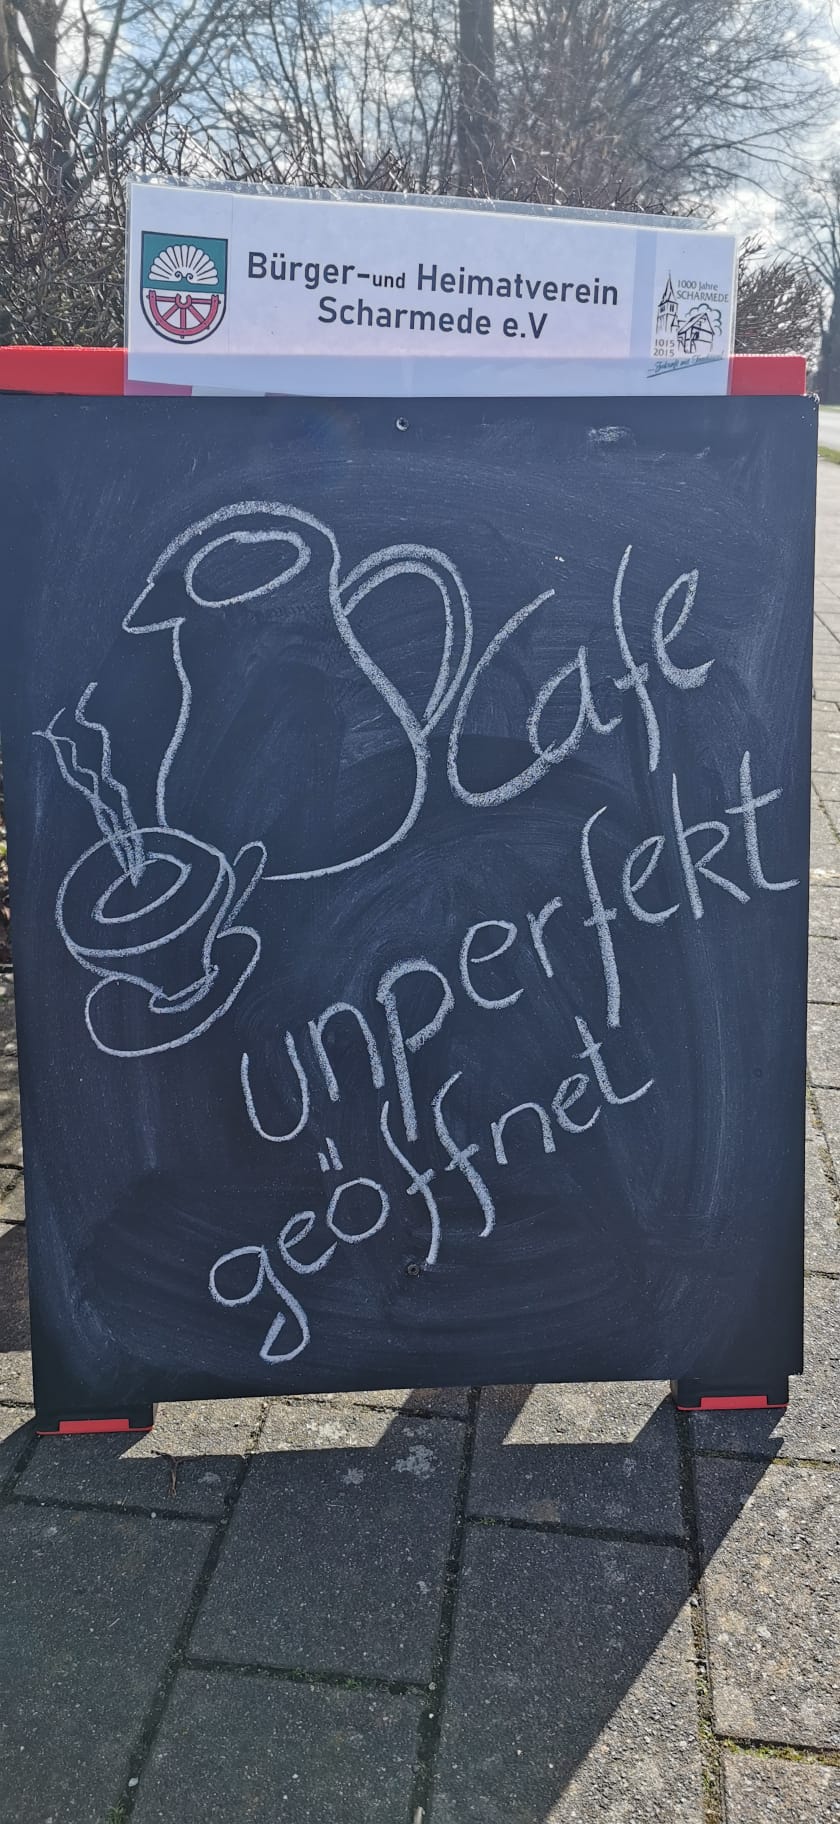 Bürger-und Heimatverein
Scharmede e.V
1000 Jahre
SCHARMEDE
1015
2015
Cafe
unperfekt
geöffnet